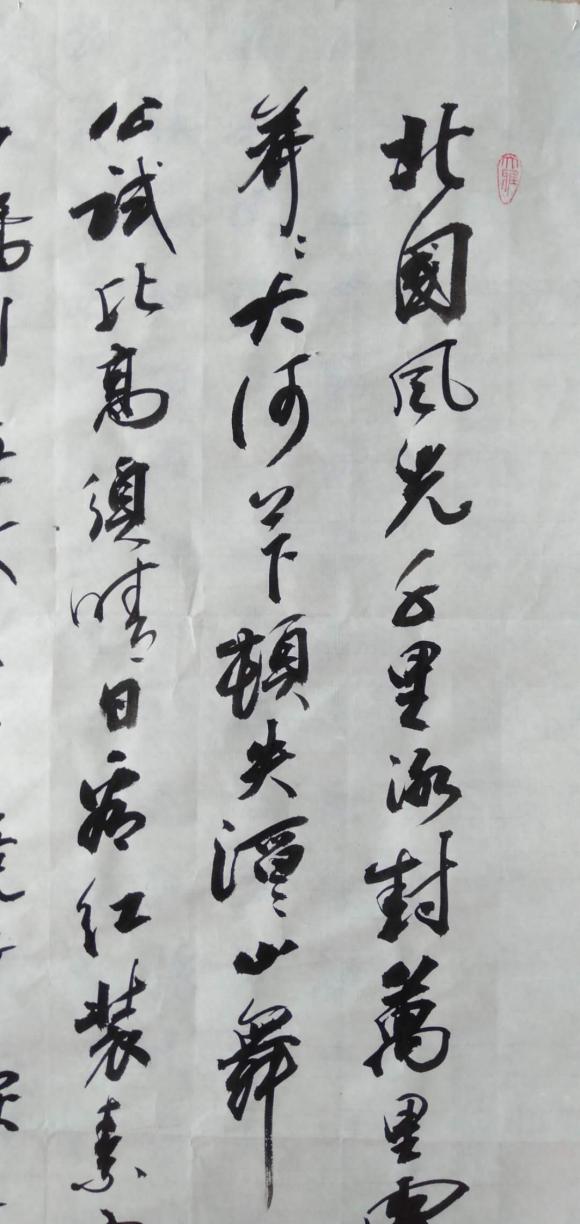 大雅
北國風光千里冰封萬里雪
莽〻大河上下頓失滔〻山舞
公試比高須晴日看红装素